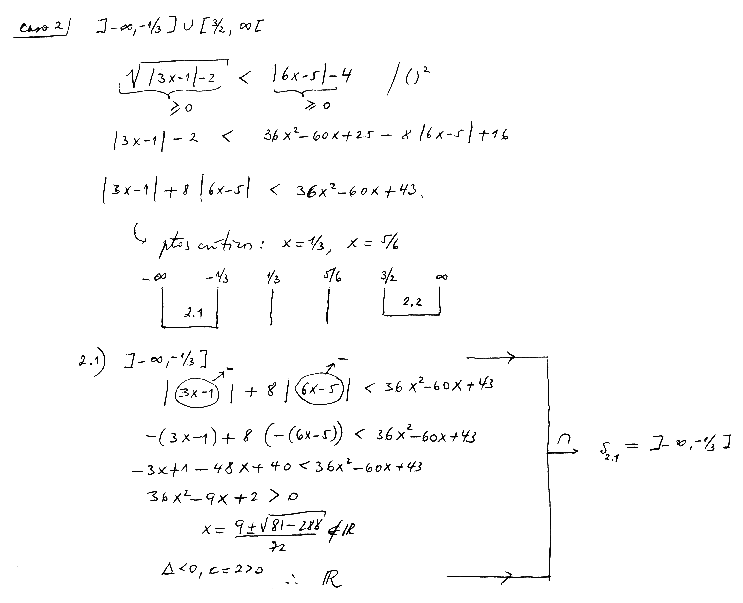 caso 2) ]-∞,-1/3] ∪ [3/2, ∞[
√(|3x-1|-2) < |6x-5|-4 /()²
≥0 ≥0
|3x-1|-2 < 36x²-60x+25-8|6x-5|+16
|3x-1|+8|6x-5| < 36x²-60x+43.
↳ ptos críticos: x=1/3, x=5/6
-∞ -1/3 1/3 5/6 3/2 ∞
2.1 2.2
2.1) ]-∞,-1/3]
- -
|3x-1| + 8|6x-5| < 36x²-60x+43
-(3x-1)+8(-(6x-5)) < 36x²-60x+43
∩ S2.1 = ]-∞,-1/3]
-3x+1-48x+40 < 36x²-60x+43
36x²-9x+2 > 0
x = (9±√(81-288))/72 ∉ ℝ
Δ<0, c=2>0 ∴ ℝ